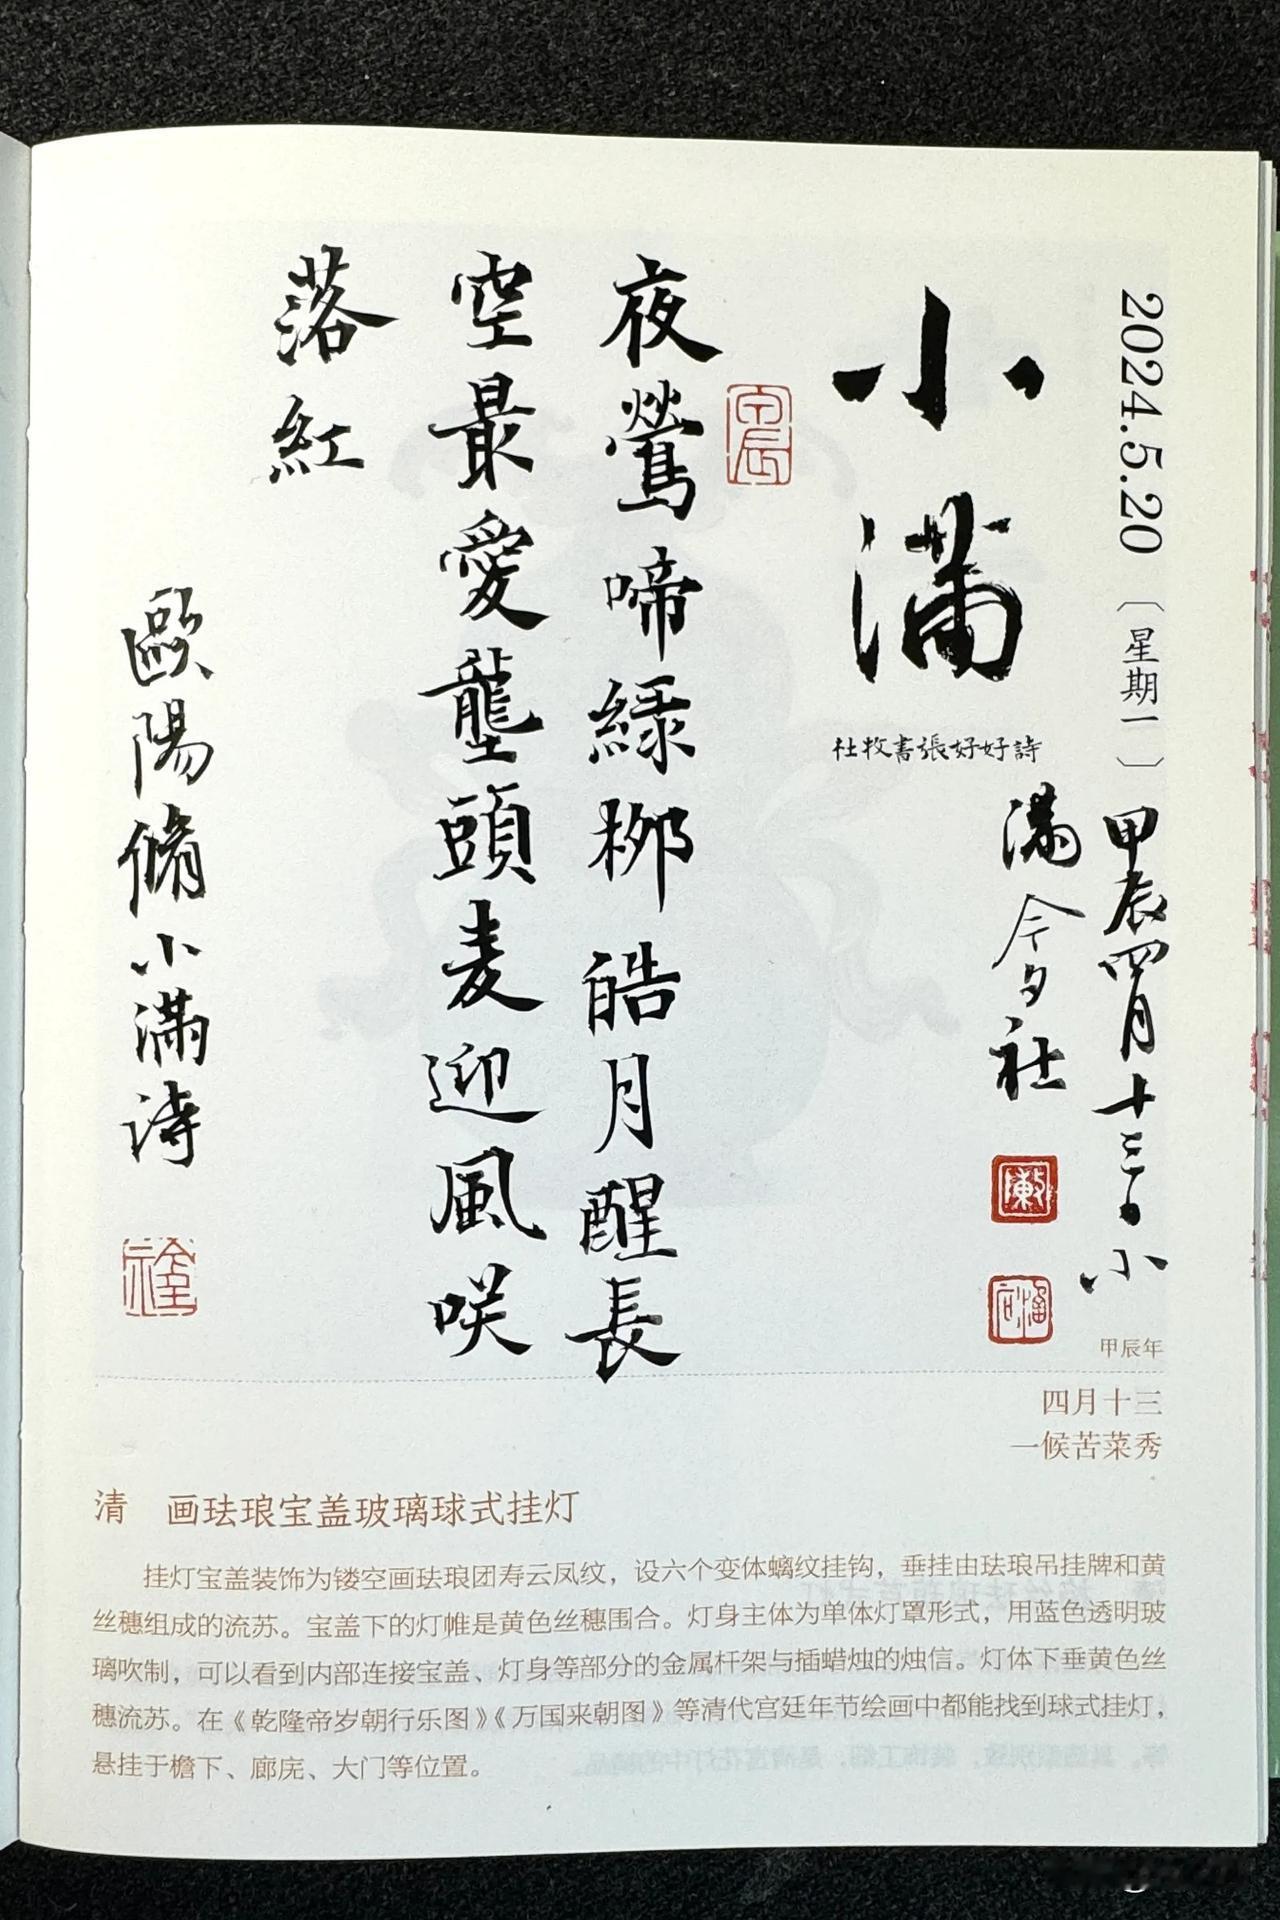 2024.5.20〔星期一〕
甲辰四月十三日小
滿
社
小滿
杜牧書張好好詩
夜鶯啼緑柳皓月醒長
空最愛壟頭麦迎風咲
落紅
歐陽脩小滿詩
甲辰年
四月十三
一候苦菜秀
清 画珐琅宝盖玻璃球式挂灯
挂灯宝盖装饰为镂空画珐琅团寿云凤纹，设六个变体螭纹挂钩，垂挂由珐琅吊挂牌和黄
丝穗组成的流苏。宝盖下的灯帷是黄色丝穗围合。灯身主体为单体灯罩形式，用蓝色透明玻
璃吹制，可以看到内部连接宝盖、灯身等部分的金属杆架与插蜡烛的烛信。灯体下垂黄色丝
穗流苏。在《乾隆帝岁朝行乐图》《万国来朝图》等清代宫廷年节绘画中都能找到球式挂灯，
悬挂于檐下、廊庑、大门等位置。